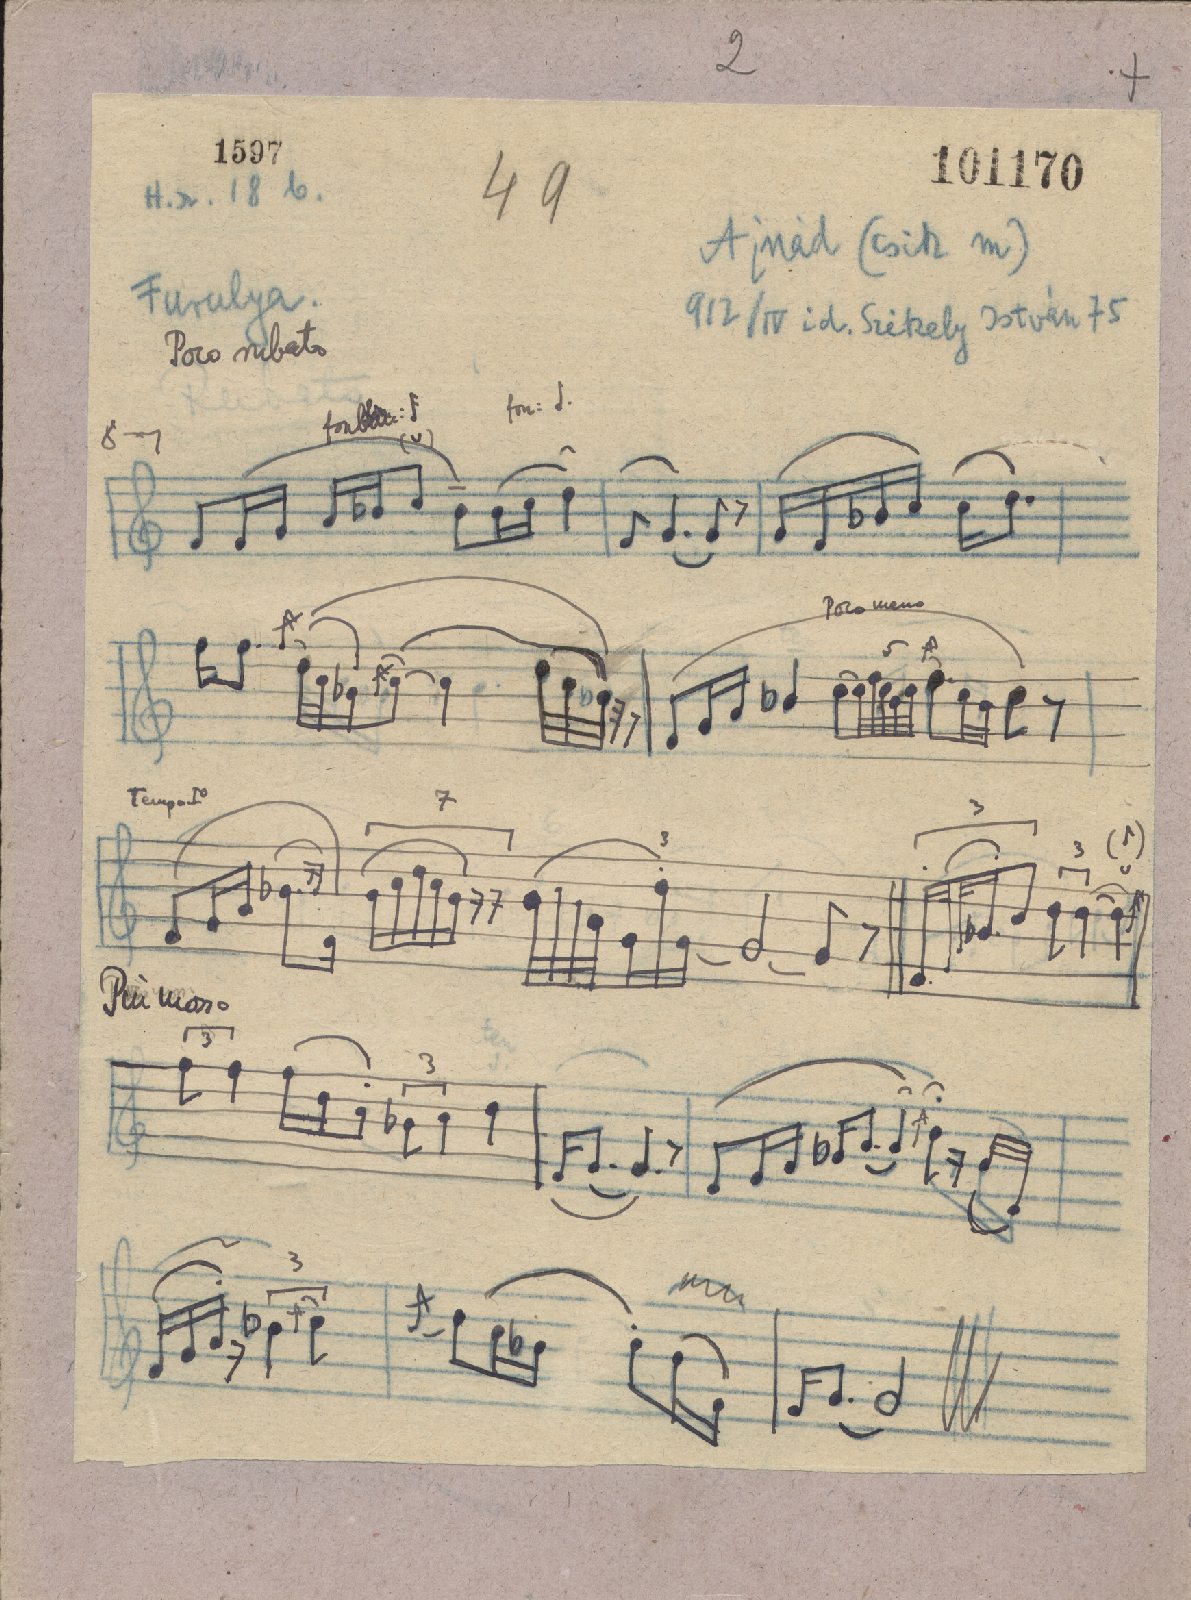 2
1597
49
101170
H.sz. 18 b.
Ajnád (Csík m)
Furulya.
912/IV id. Székely István 75
Poco rubato
8
Poco meno
5
Tempo I°
7
3
3
3
Più mosso
3
3
3